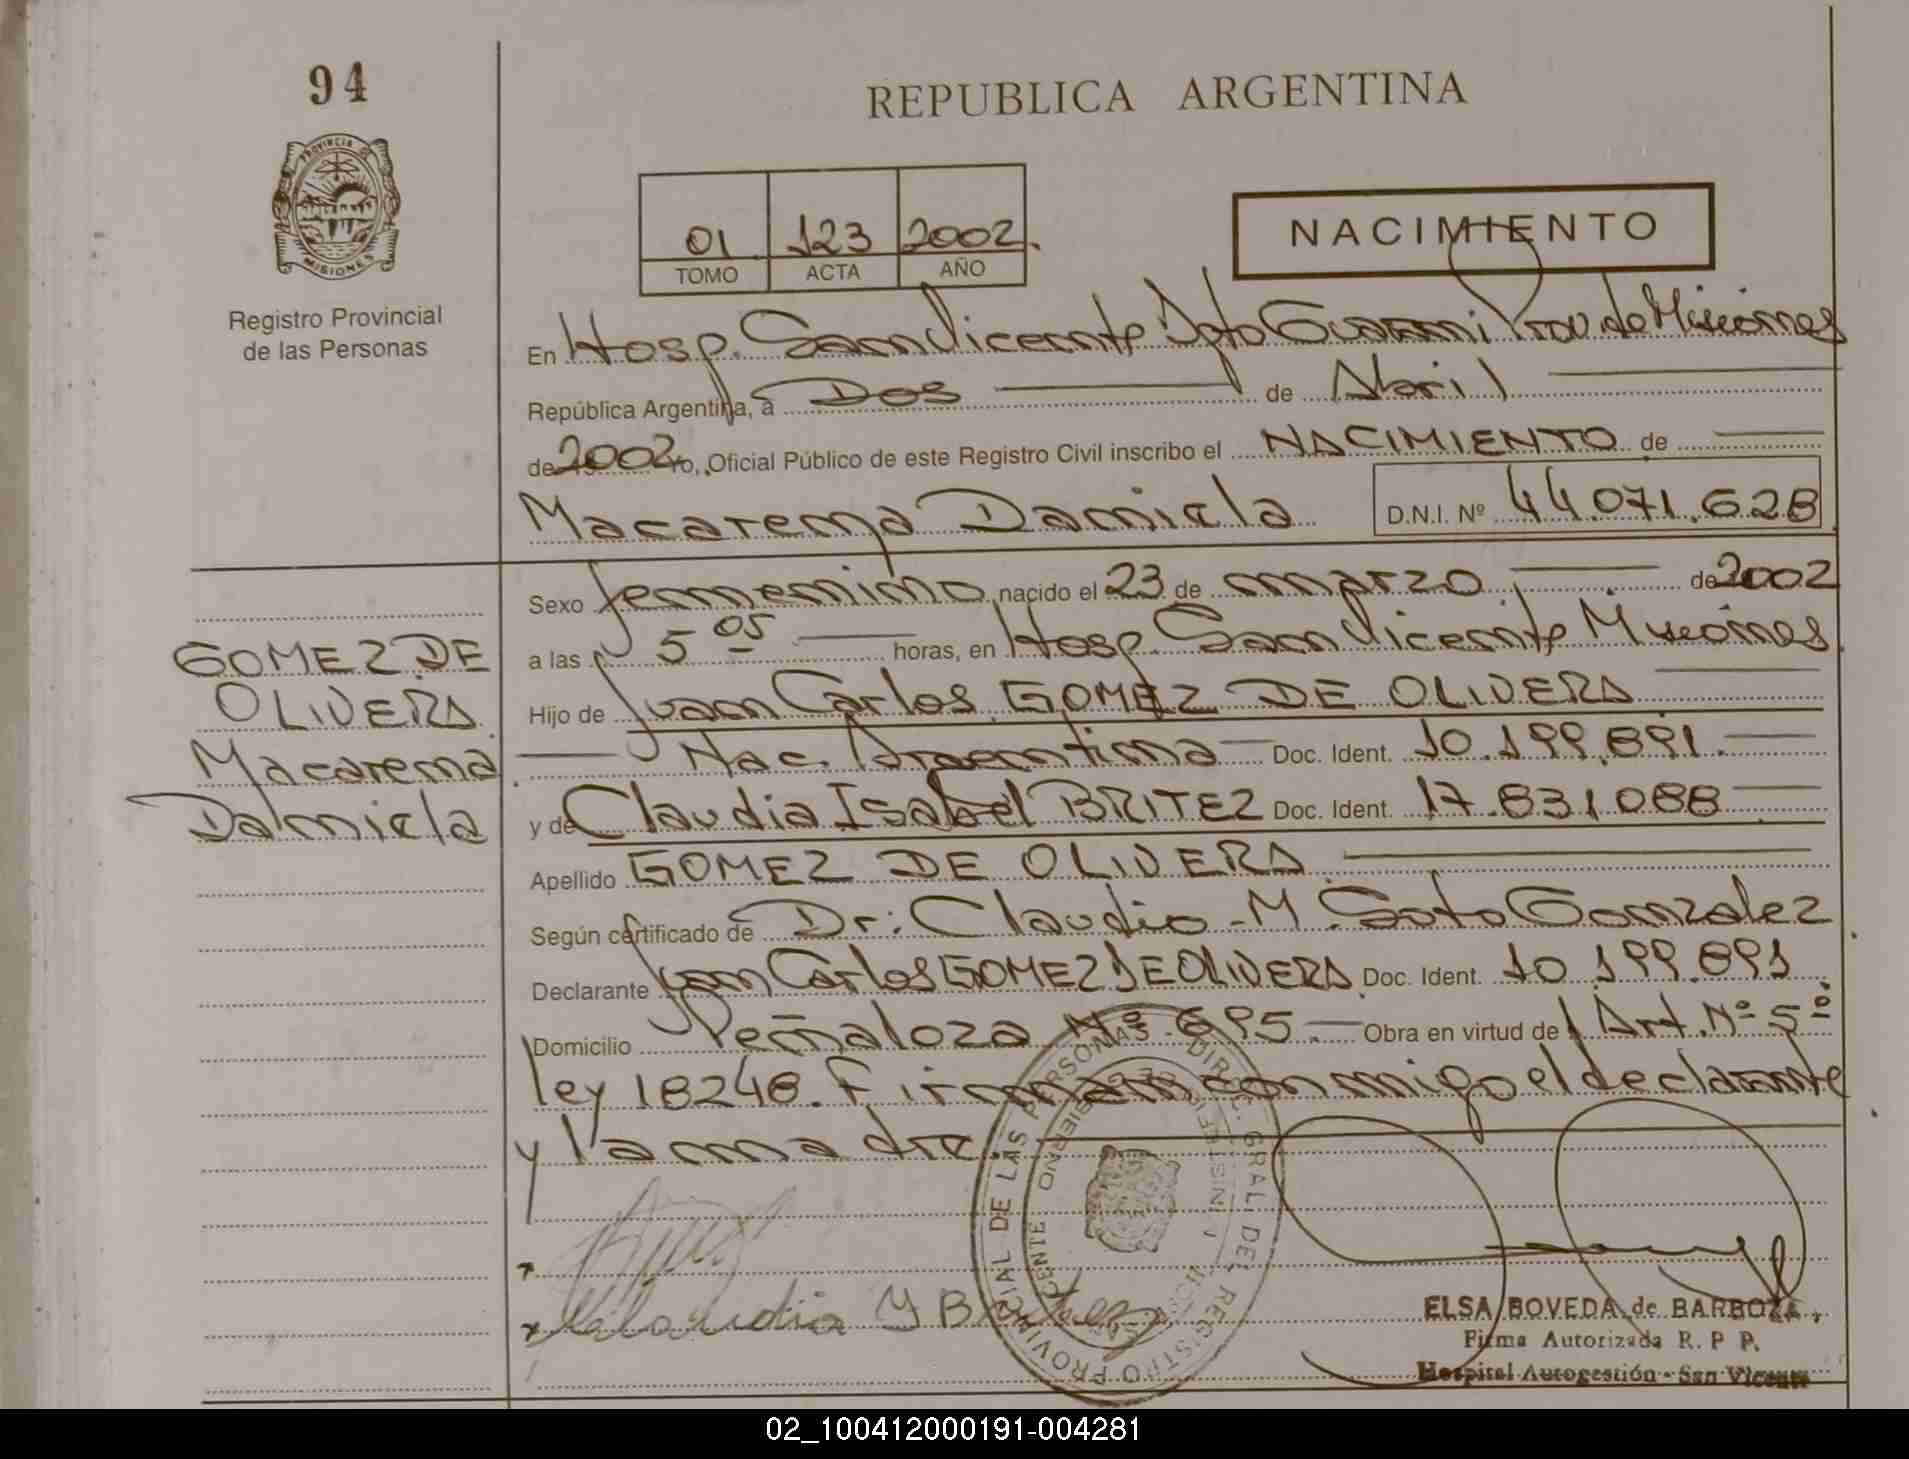 94
REPUBLICA ARGENTINA
PROVINCIA DE
MISIONES
Registro Provincial
de las Personas
01 123 2002.
TOMO ACTA AÑO
NACIMIENTO
En Hosp. San Vicente Dpto Guarani Prov. de Misiones
República Argentina, a Dos de Abril
de 2002 Yo, Oficial Público de este Registro Civil inscribo el NACIMIENTO de
Macarena Daniela D.N.I. Nº 44.071.628
Sexo femenino nacido el 23 de marzo de 2002
a las 5 05 horas, en Hosp. San Vicente Misiones
Hijo de Juan Carlos GOMEZ DE OLIVERA
Nac. Argentina Doc. Ident. 10.199.891.
y de Claudia Isabel BRITEZ Doc. Ident. 17.831.088
Apellido GOMEZ DE OLIVERA
Según certificado de Dr: Claudio M. Soto Gonzalez
Declarante Juan Carlos GOMEZ DE OLIVERA Doc. Ident. 10.199.891
Domicilio Peñaloza Nº 695. Obra en virtud del Art. Nº 5º
ley 18248. Firman conmigo el declarante
y la madre.
GOMEZ DE
OLIVERA
Macarena
Daniela
Claudia Y Britez
DIREC. GRAL. DEL REGISTRO PROVINCIAL DE LAS PERSONAS
ELSA BOVEDA de BARBOZA
Firma Autorizada R. P P.
Hospital Autogestión - San Vicente
02_100412000191-004281